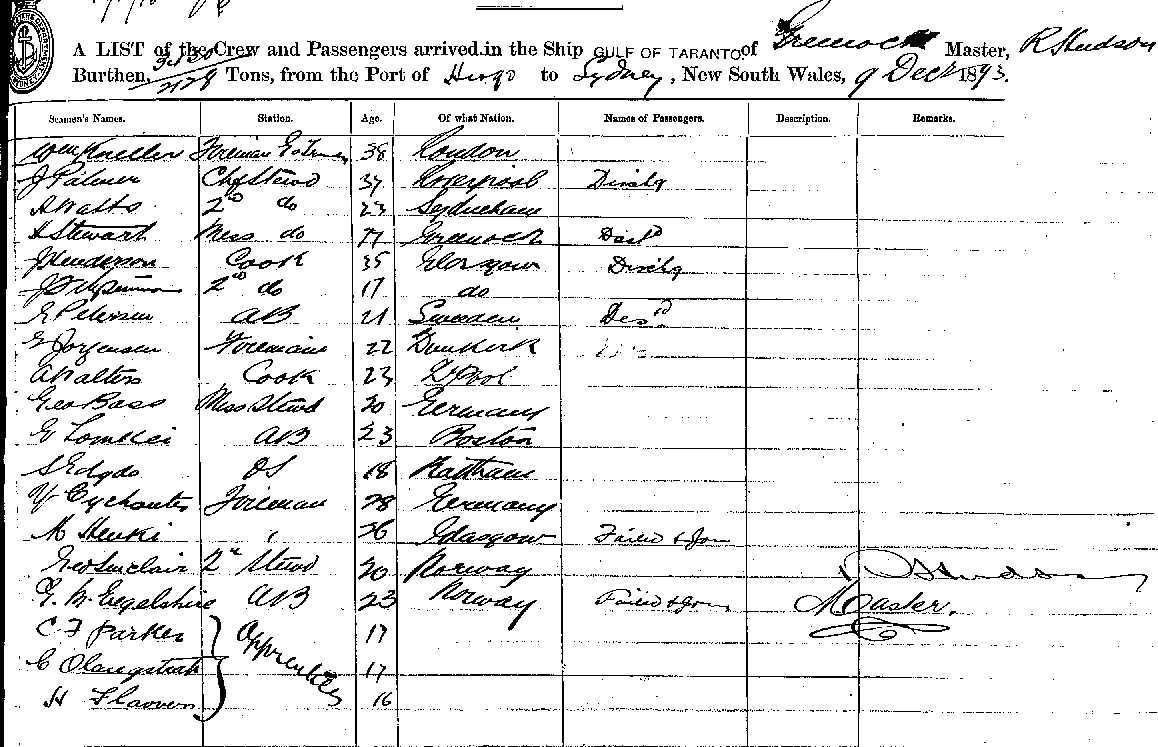 A LIST of the Crew and Passengers arrived in the Ship GULF OF TARANTO of Greenock Master, R Hudson
Burthen, 2129 Tons, from the Port of to Sydney, New South Wales, 9 Dec 1893.
Seamen's Names. Station. Age. Of what Nation. Names of Passengers. Description. Remarks.
Wm Kneller Fireman 38 London
J Palmer Ch Stewd 37 Liverpool Dischg
A Watts 2nd do 23 Sydenham
A Stewart Mess do Greenock Desd
J Henderson Cook 35 Glasgow Dischg
2nd do 17 do
E Petersen AB 21 Sweden Desd
G Jorgensen Fireman 22 Dunkirk
A Walters Cook 23 L'Pool
Geo Bass Mess Stewd 20 Germany
AB 23 Boston
S Edgds OS 18
Fireman 28 Germany
M 26 Glasgow Failed to Join
Geo Sinclair 2nd Stewd 20 Norway R Hudson
AB 23 Norway Failed to Join Master.
C F Parker Apprentices 17
C 17
H 16